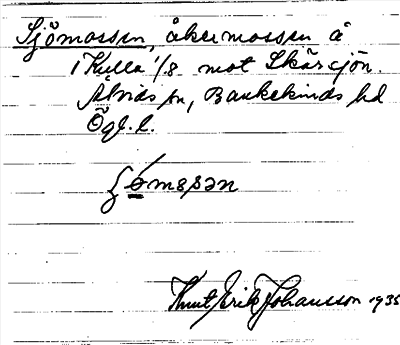 Sjömossen, åkermossen å
i Kulla 1/8 mot Skärsjön.
Åtvids sn, Bankekinds hd
Ögl. l.
Knut Erik Johansson 1935